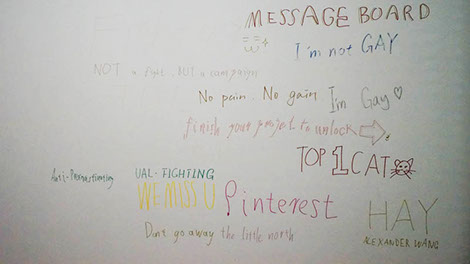 MESSAGE BOARD
I'm not GAY
NOT a fight. BUT a campaign
No pain. No gain. I'm Gay
finish your project to unlock
TOP 1 CAT
UAL-FIGHTING
WE MISS U Pinterest
HAY
Don't go away the little north
ALEXANDER WANG